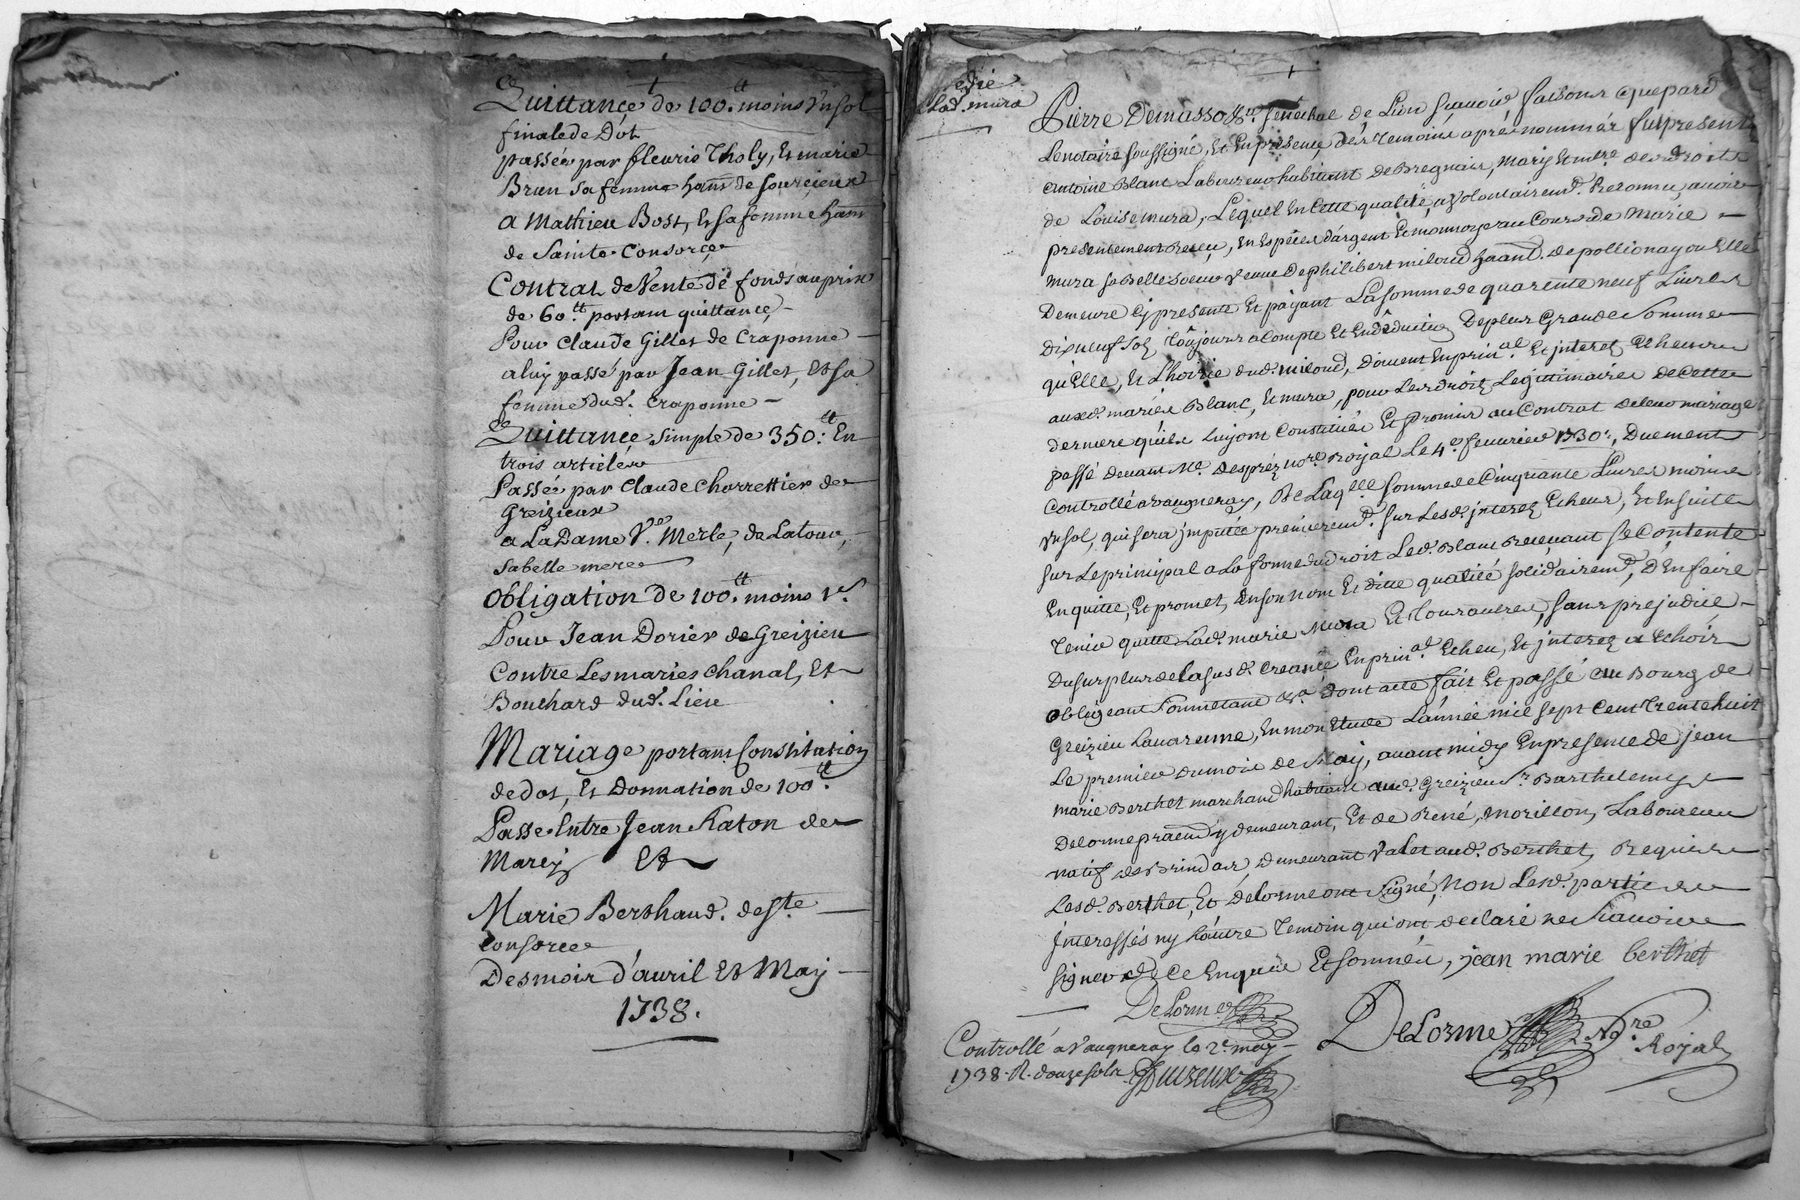 Quittance de 100.tt moins Un sol
finale de Dot
passée par fleurie Tholy, Et marie
Brun sa femme ham de Sourcieux
a Mathieu Bost, Et sa femme ham
de Sainte Consorce
Contrat de Vente de fonds au prix
de 60.tt portant quittance,
Pour Claude Gilles de Craponne
a luy passé par Jean Gilles, et sa
femme dud. Craponne
Quittance simple de 350.tt En
trois articles
Passée par Claude Chorrettier de
Greizieux
a La Dame Ve. Merle, de Latour,
sa belle mere
Obligation de 100.tt moins 1 s.
Pour Jean Dorier de Greizieu
Contre Les maries Chanal, Et
Bouchard dud. Lieu
Mariage portant Constitution
de dot, Et Donnation de 100.tt
Passe Entre Jean Raton de
Marcy Et
Marie Berthaud. de Ste
Consorce
Des mois d'auril Et May
1738.
Lad. mura
Pierre Demasso Senechal de Lion Scauoir faisons que pard
Le notaire soussigné, Et En presence des temoins aprés nommés fut present
antoine Blanc Laboureur habitant de Bregnais, mary Et mtre des droits
de Louise mura, Lequel En Cette qualité, a Volontairemt. Reconnu, auoir
presentement Receu, En Especes d'argent Et monnoye au Cours de Marie
mura sa Belle soeur Veuve de philibert miloud hant. de pollionay ou Elle
Demeure Cy presente Et payant La somme de quarente neuf Liures
Dix neuf sols Toûjours a Compte Et En deduction De plus Grande somme
qu'Elle, Et L'hoirie dud. miloud, Doivent En prinal. Et interets Echeus
auxd. mariés Blanc, Et mura, pour Les droits Legitimaires de Cette
derniere qu'ils Luy ont Constitués Et promis au Contrat de leur mariage
passé deuant Me. Desprez nore. Royal Le 4e. feurier 1730., Duement
Controllé a Vaugneray, De Laqlle somme de Cinquante Liures moins
Un sol, qui sera imputée premieremt. sur Lesd. interets Echeus, Et Ensuitte
sur Le principal a La forme du droit Led. Blanc Receuant se Contente
En quitte, Et promet, En son nom Et ditte qualité solidairemt, D'En faire
Tenir quitte Lad. marie Mura Et Tous autres, sans prejudice
Du surplus de La susd. Creance En prinal. Echeu, Et interets a Echoir
obligeant soumetant &a dont acte fait Et passé au Bourg de
Greizieu Lauarenne, En mon Etude L'année mil sept Cent Trente huit
Le premier du mois de May, auant midy En presence de jean
marie Berthet marchand habitant aud. Greizieu Sr. Barthelemy
Delorme praticien y demeurant, Et de René, Morillon, Laboureur
natif de Brindas, Demeurant Valet aud. Berthet, Requis
Lesd. Berthet, Et Delorme ont signé, Non Lesd. parties
interessés ny L'autre Temoin qui ont declaré ne Scauoir
signer de Ce Enquis Et sommés, jean marie berthet
Delorme
DeLorme Nore
Royal
Controllé a Vaugneray le 2e. may
1738. R. douze sols